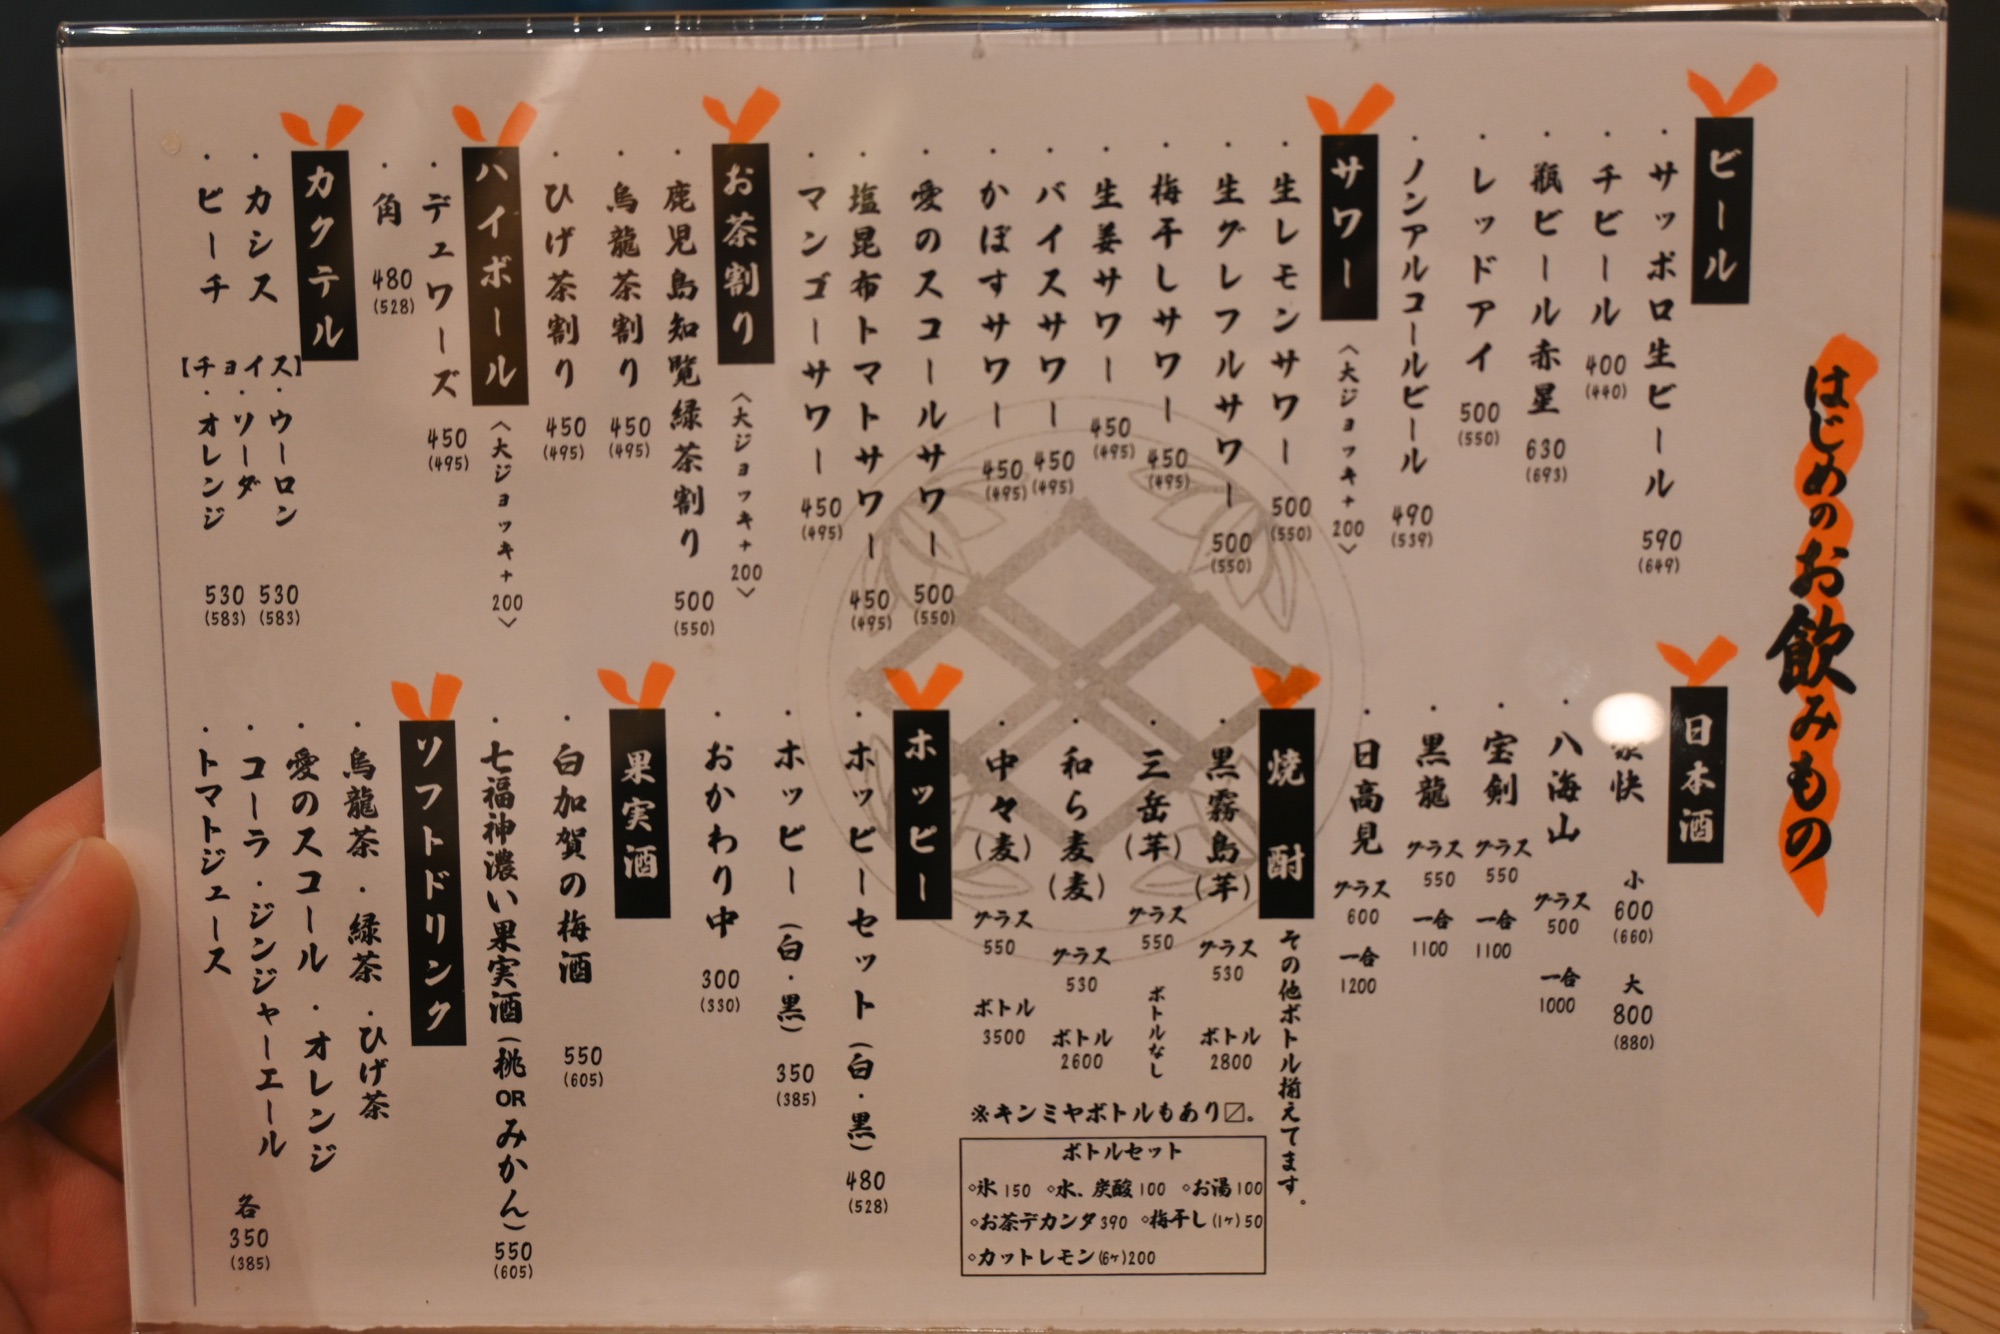 はじめのお飲みもの
ビール
・サッポロ生ビール 590 (649)
・チビール 400 (440)
・瓶ビール赤星 630 (693)
・レッドアイ 500 (550)
・ノンアルコールビール 490 (539)
サワー 〈大ジョッキ+200〉
・生レモンサワー 500 (550)
・生グレフルサワー 500 (550)
・梅干しサワー 450 (495)
・生姜サワー 450 (495)
・バイスサワー 450 (495)
・かぼすサワー 450 (495)
・愛のスコールサワー 500 (550)
・塩昆布トマトサワー 450 (495)
・マンゴーサワー 450 (495)
お茶割り 〈大ジョッキ+200〉
・鹿児島知覧緑茶割り 500 (550)
・烏龍茶割り 450 (495)
・ひげ茶割り 450 (495)
ハイボール 〈大ジョッキ+200〉
・デュワーズ 450 (495)
・角 480 (528)
カクテル
・カシス 530 (583)
・ピーチ 530 (583)
【チョイス】
・ウーロン
・ソーダ
・オレンジ
日本酒
快 小 600 (660) 大 800 (880)
・八海山 グラス 500 一合 1000
・宝剣 グラス 550 一合 1100
・黒龍 グラス 550 一合 1100
・日高見 グラス 600 一合 1200
焼酎 その他ボトル揃えてます。
・黒霧島(芋) グラス 530 ボトル 2800
・三岳(芋) グラス 550 ボトルなし
・和ら麦(麦) グラス 530 ボトル 2600
・中々(麦) グラス 550 ボトル 3500
※キンミヤボトルもあり〼。
ボトルセット
◦氷150 ◦水、炭酸100 ◦お湯100
◦お茶デカンタ390 ◦梅干し(1ヶ)50
◦カットレモン(6ヶ)200
ホッピー
・ホッピーセット(白・黒) 480 (528)
・ホッピー(白・黒) 350 (385)
・おかわり中 300 (330)
果実酒
・白加賀の梅酒 550 (605)
・七福神濃い果実酒(桃ORみかん) 550 (605)
ソフトドリンク
・烏龍茶・緑茶・ひげ茶
・愛のスコール・オレンジ
・コーラ・ジンジャーエール
・トマトジュース
各 350 (385)